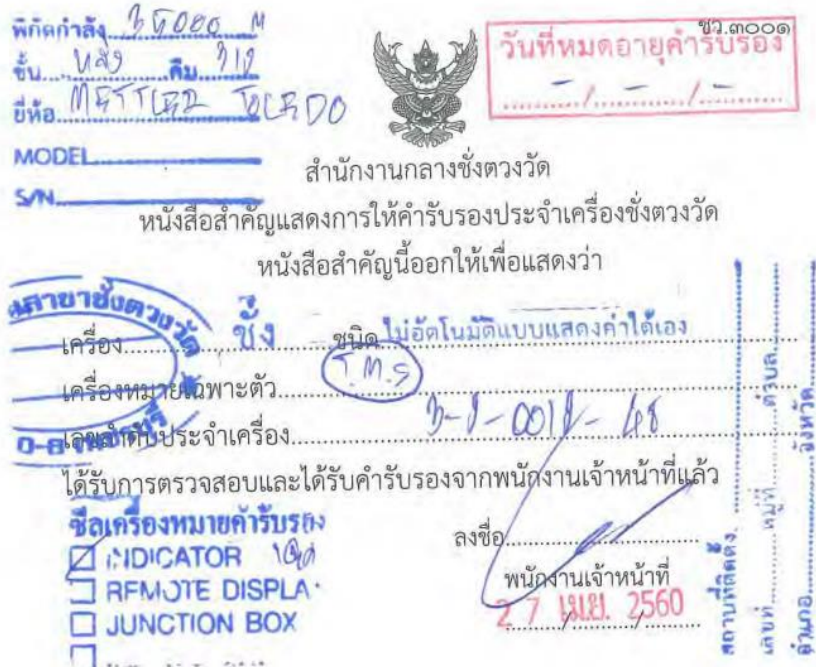 พิกัดกำลัง
ชว.๓๐๐๑
วันที่หมดอายุคำรับรอง
- / - / -
ขั้น
ยี่ห้อ METTLER TOLEDO
MODEL
S/N
สำนักงานกลางชั่งตวงวัด
หนังสือสำคัญแสดงการให้คำรับรองประจำเครื่องชั่งตวงวัด
หนังสือสำคัญนี้ออกให้เพื่อแสดงว่า
สาขาชั่งตวงวัด
เครื่อง ชั่ง ชนิด ไม่อัตโนมัติแบบแสดงค่าได้เอง
เครื่องหมายเฉพาะตัว T.M.S
เลขลำดับประจำเครื่อง
ได้รับการตรวจสอบและได้รับคำรับรองจากพนักงานเจ้าหน้าที่แล้ว
ซีลเครื่องหมายคำรับรอง
INDICATOR
REMOTE DISPLA
JUNCTION BOX
ลงชื่อ
พนักงานเจ้าหน้าที่
27 เม.ย. 2560
สถานที่ติดตั้ง
เลขที่ หมู่ที่ ตำบล
อำเภอ จังหวัด